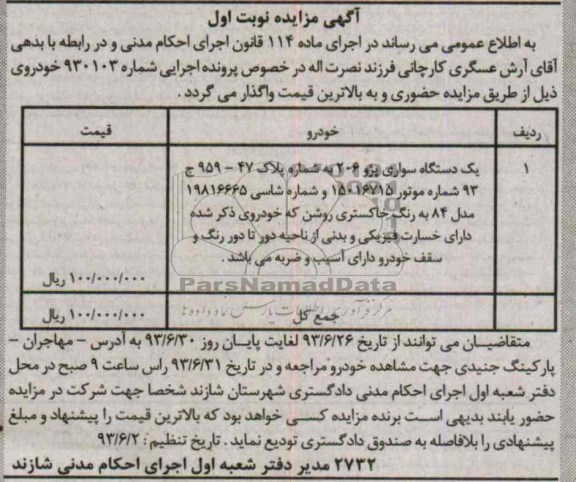 آگهی مزایده نوبت اول
به اطلاع عمومی می رساند در اجرای ماده ۱۱۴ قانون اجرای احکام مدنی و در رابطه با بدهی
آقای آرش عسگری کارچانی فرزند نصرت اله در خصوص پرونده اجرایی شماره ۹۳۰۱۰۳ خودروی
ذیل از طریق مزایده حضوری و به بالاترین قیمت واگذار می گردد.
ردیف خودرو قیمت
۱ یک دستگاه سواری پژو ۲۰۶ به شماره پلاک ۴۷ – ۹۵۹ ج
۹۳ شماره موتور ۱۵۰۱۶۷۱۵ و شماره شاسی ۱۹۸۱۶۶۶۵
مدل ۸۴ به رنگ خاکستری روشن که خودروی ذکر شده
دارای خسارت فیزیکی و بدنی از ناحیه دور تا دور رنگ و
سقف خودرو دارای آسیب و ضربه می باشد.
۱۰۰/۰۰۰/۰۰۰ ریال
ParsNamadData
جمع کل ۱۰۰/۰۰۰/۰۰۰ ریال
مرکز فرآوری اطلاعات پارس نماد داده ها
متقاضیان می توانند از تاریخ ۹۳/۶/۲۶ لغایت پایان روز ۹۳/۶/۳۰ به آدرس – مهاجران –
پارکینگ جنیدی جهت مشاهده خودرو مراجعه و در تاریخ ۹۳/۶/۳۱ راس ساعت ۹ صبح در محل
دفتر شعبه اول اجرای احکام مدنی دادگستری شهرستان شازند شخصا جهت شرکت در مزایده
حضور یابند بدیهی است برنده مزایده کسی خواهد بود که بالاترین قیمت را پیشنهاد و مبلغ
پیشنهادی را بلافاصله به صندوق دادگستری تودیع نماید. تاریخ تنظیم: ۹۳/۶/۲
۲۷۳۲ مدیر دفتر شعبه اول اجرای احکام مدنی شازند